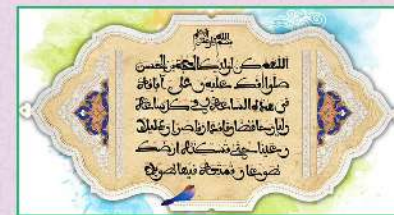 بسم الله الرحمن الرحیم
اللهم کن لولیک الحجة بن الحسن
صلواتک علیه و علی آبائه
فی هذه الساعة و فی کل ساعة
ولیا و حافظا و قائدا و ناصرا و دلیلا
و عینا حتی تسکنه ارضک
طوعا و تمتعه فیها طویلا